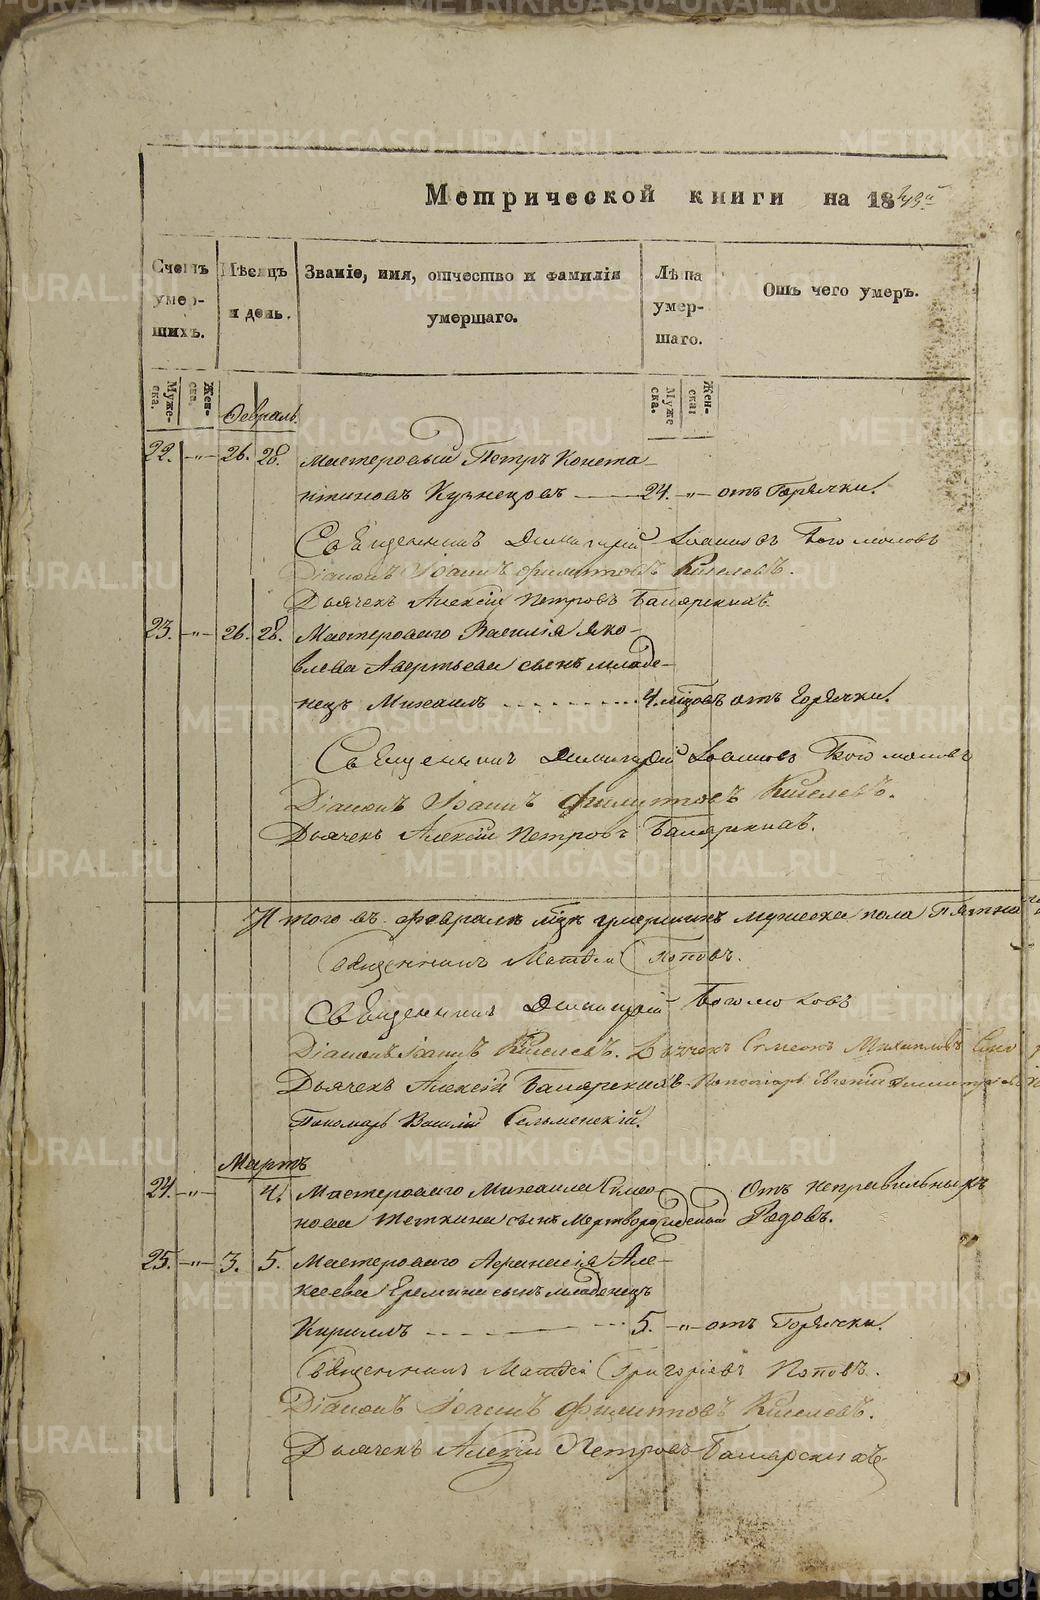 Метрической книги на 1843й
Счетъ умер-шихъ.
Мѣсяцъ и день.
Званіе, имя, отчество и фамилія умершаго.
Лѣта умер-шаго.
Отъ чего умеръ.
Муже-ска. Жен-ска. Муже ска. Жен-ска.
Февраль.
22. -"- 26. 28. Мастеровый Петръ Конста-
нтиновъ Кузнецовъ 24. -"- отъ Горячки.
Священникъ Димитрій Іоанновъ Богомоловъ
Діаконъ Іоаннъ Филитовъ Киселевъ.
Дьячекъ Алексій Петровъ
23. -"- 26. 28. Мастероваго Василія Яко-
влева Аверьева сынъ младе-
нецъ Михаилъ 4. мѣсовъ отъ Горячки.
Священникъ Димитрій Іоанновъ Богомоловъ
Діаконъ Іоаннъ Филитовъ Киселевъ.
Дьячекъ Алексій Петровъ
Итого въ Феврале мѣсяце умершихъ мужеска пола Пятна
Священникъ Матѳей Поповъ.
Священникъ Димитрій Богомоловъ
Діаконъ Іоаннъ Киселевъ. Дьячекъ Симеонъ Михайловъ
Дьячекъ Алексій Пономарь Евгеній
Пономарь Василій
Мартъ
24. -"- 4. Мастероваго Михаила Симе-
нова Теткина сынъ Мертворожденной Отъ неправильныхъ Родовъ.
25. -"- 3. 5. Мастероваго Афанасія Але-
ксеева Еремина сынъ младенецъ
Кириллъ 5. -"- отъ Горячки.
Священникъ Матѳей Григоріевъ Поповъ.
Діаконъ Іоаннъ Филитовъ Киселевъ.
Дьячекъ Алексій Петровъ
METRIKI.GASO-URAL.RU